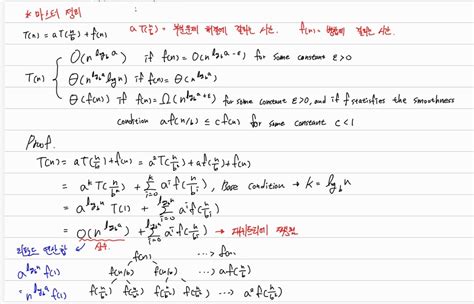 * 마스터 정리
T(n) = aT(n/b) + f(n)   a T(n/b) = 부분문제 해결에 걸리는 시간.   f(n) = 병합에 걸리는 시간.
T(n) { O(n^{log_b a}) if f(n) = O(n^{log_b a - ε}) for some constant ε>0
Θ(n^{log_b a} log n) if f(n) = Θ(n^{log_b a})
Θ(f(n)) if f(n) = Ω(n^{log_b a + ε}) for some constant ε>0, and if f statisfies the smoothness
condition a f(n/b) ≤ c f(n) for some constant c<1
Proof.
T(n) = aT(n/b) + f(n) = a²T(n/b²) + af(n/b) + f(n)
= a^k T(n/b^k) + Σ_{i=0} a^i f(n/b^i), Base condition → k = log_b n
= a^{log_b n} T(1) + Σ_{i=0}^{log_b n} a^i f(n/b^i)
= O(n^{log_b a}) + Σ_{i=0}^{log_b n} a^i f(n/b^i) →
상수. f(n) ... → f(n)
a^{log_b n} f(1) f(n/b) f(n/b) ... → a f(n/b)
= n^{log_b a} f(1) f(n/b²) f(n/b²) f(n/b²) f(n/b²) ... → a² f(n/b²)